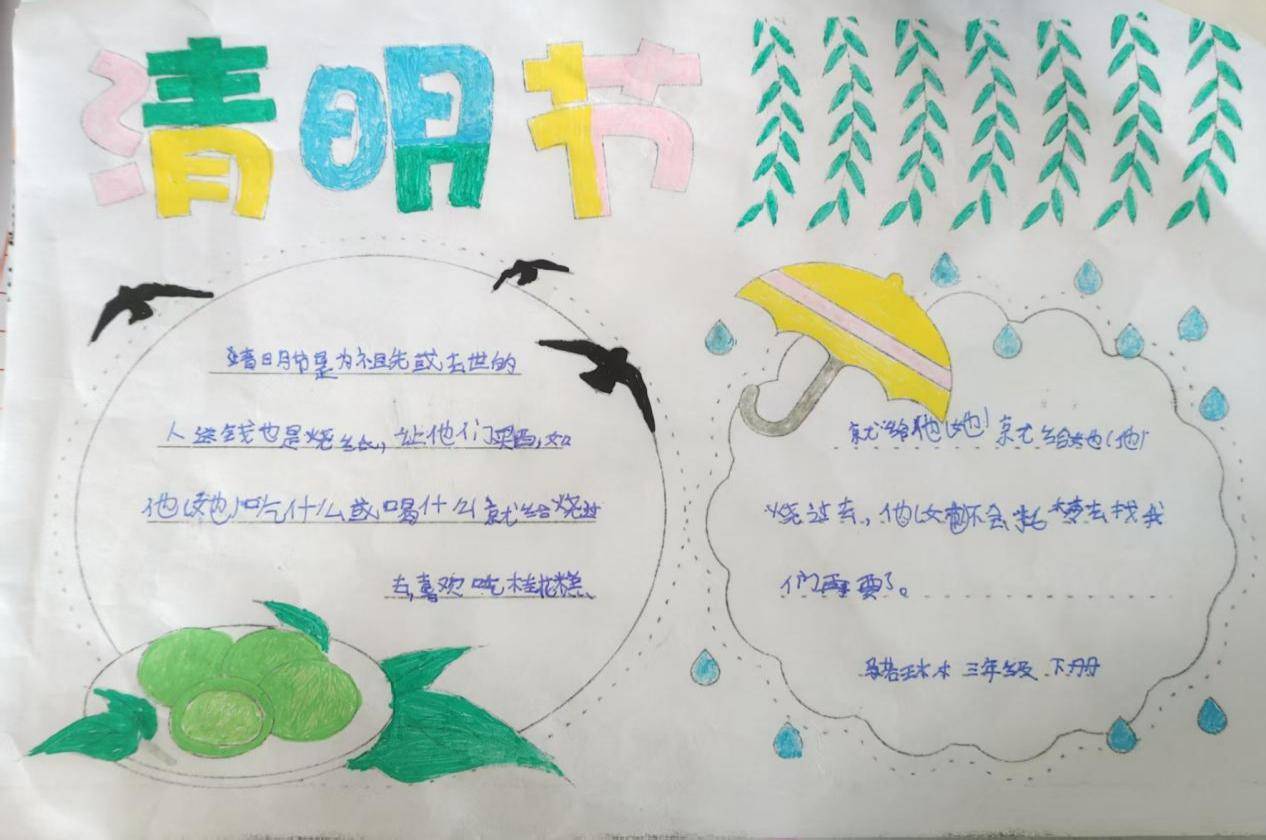 清明节
清明节是为祖先或去世的
人送钱也是烧给,,让他们买西,如
他(她)吃什么或喝什么就给烧过
去,喜欢吃桂花糕、
就给他(她)就给她(他)
烧过去,,他(她)都不会托梦去找我
们再要了。
三年级 下册